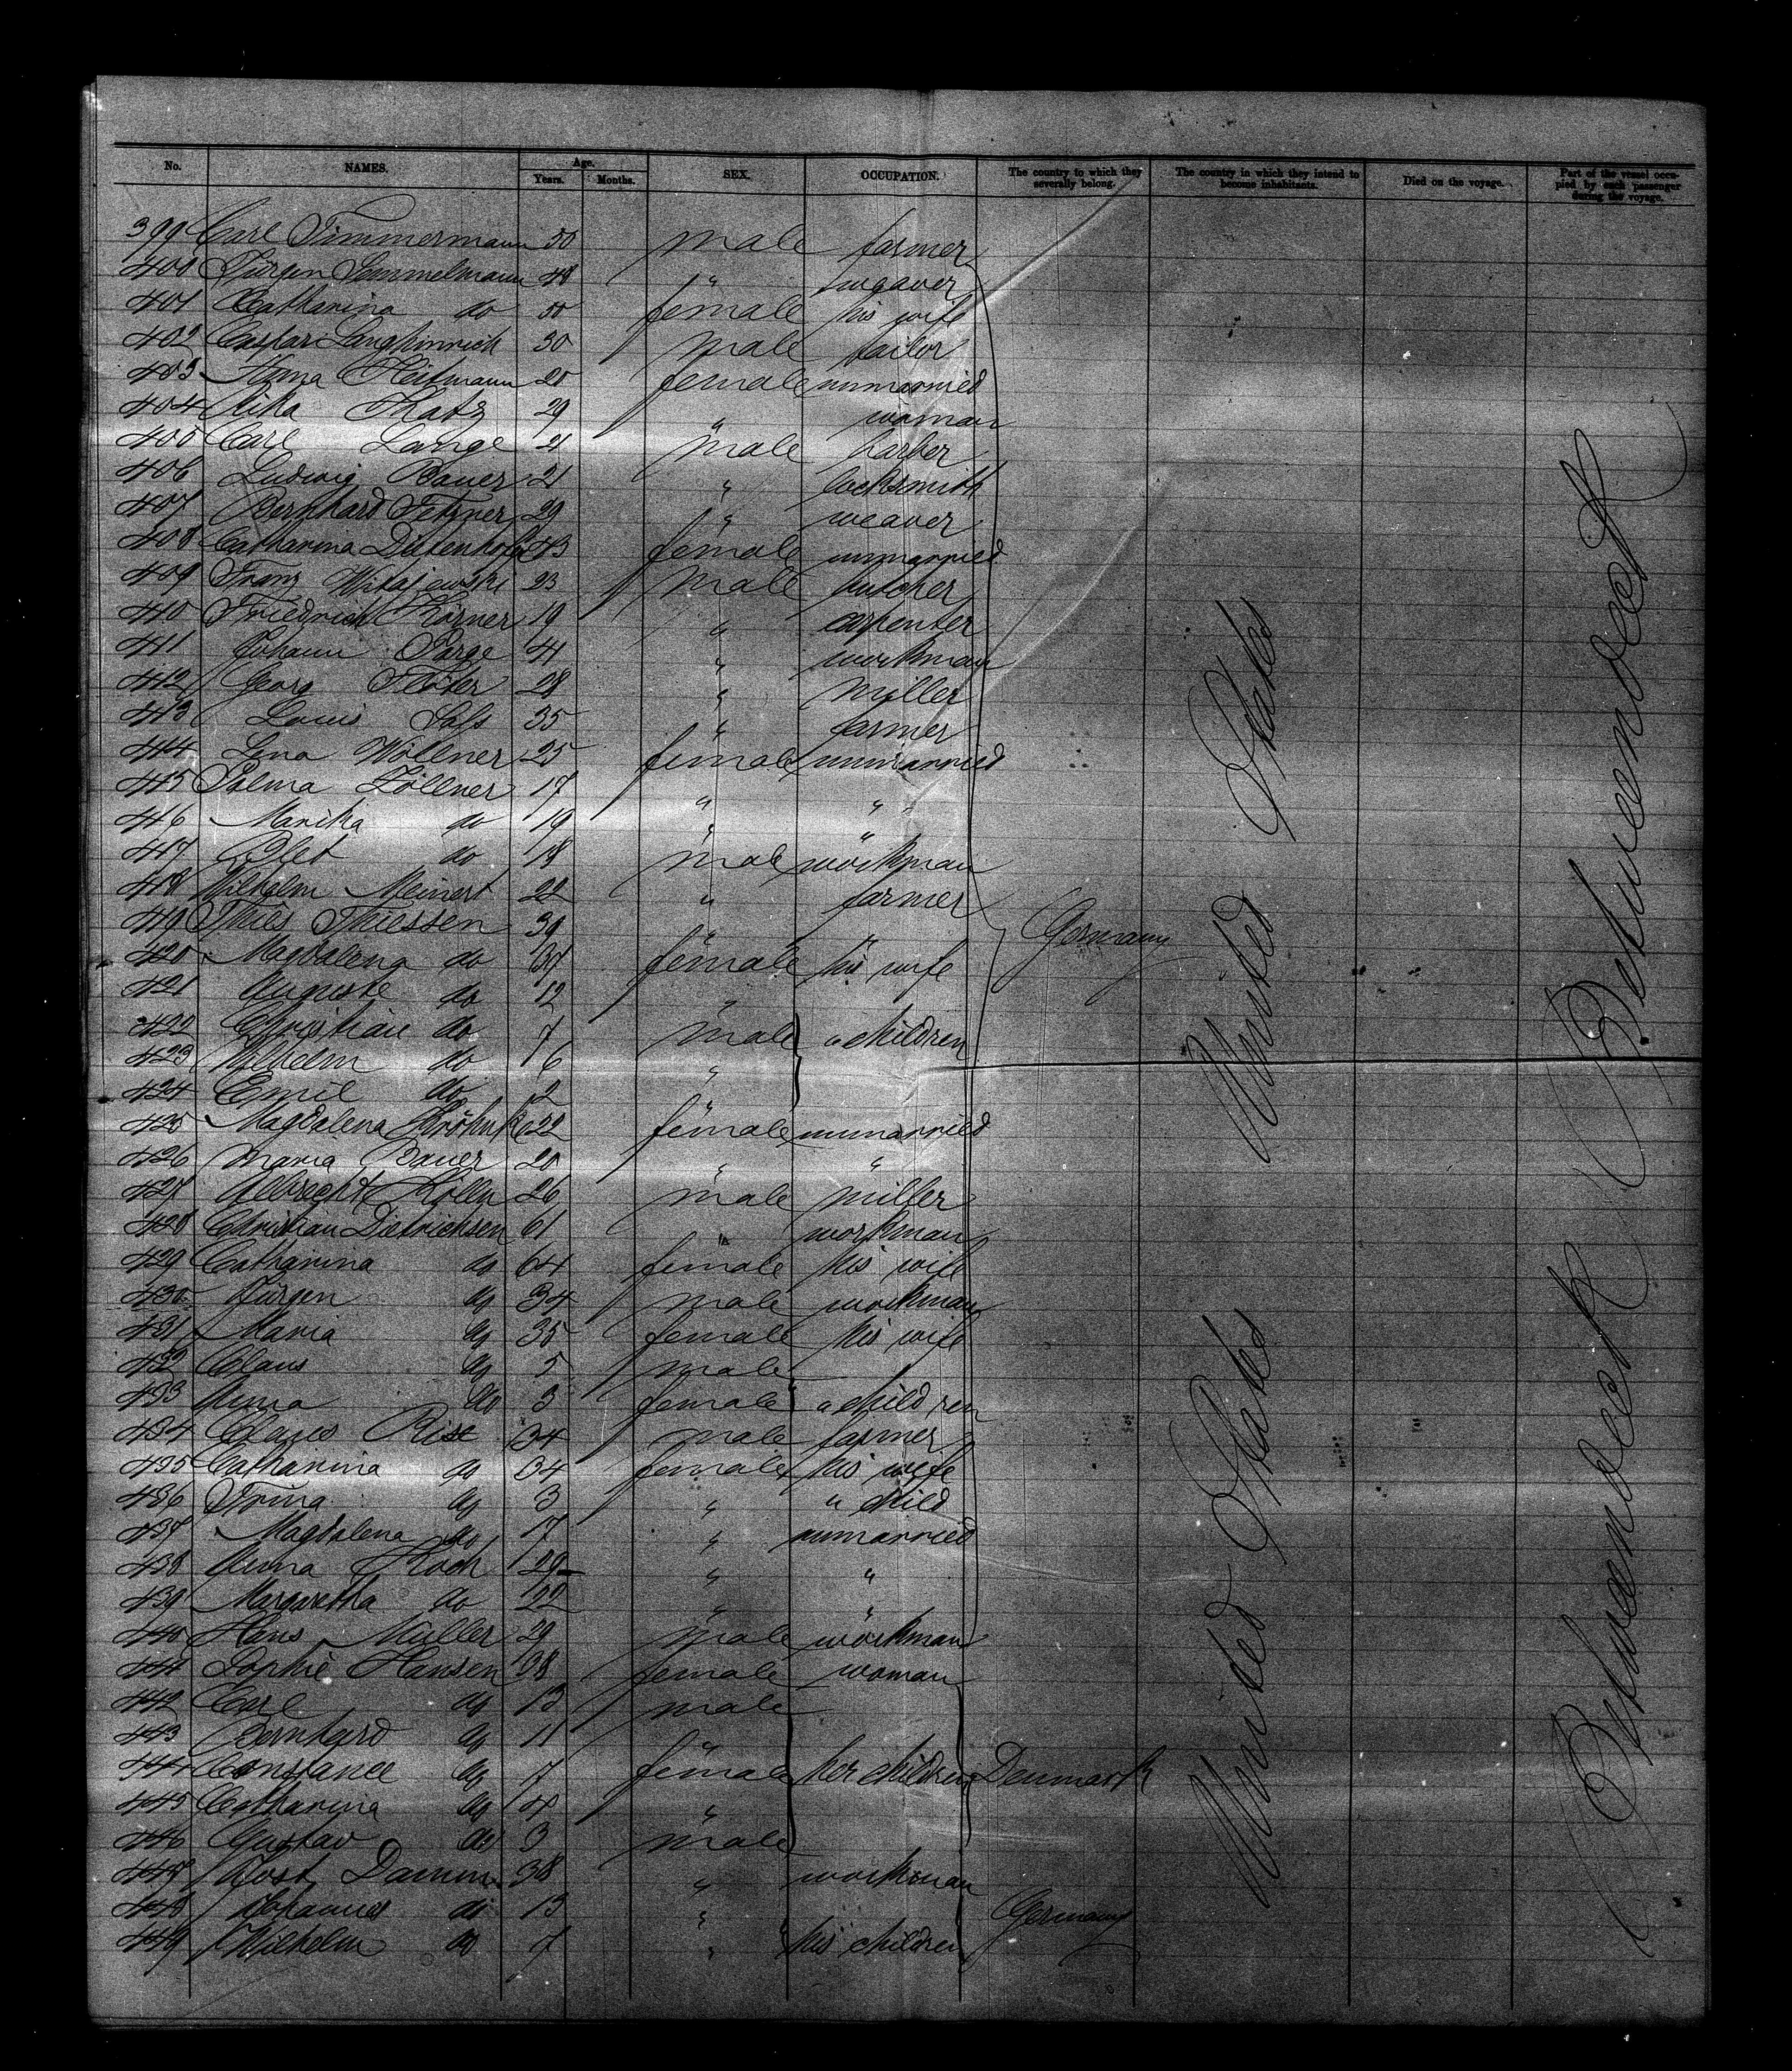 No. NAMES. Age. Years. Months. SEX. OCCUPATION. The country to which they severally belong. The country in which they intend to become inhabitants. Died on the voyage. Part of the vessel occupied by each passenger during the voyage.
399 Carl Timmermann 50 male farmer
400 Jürgen Semmelmann 48 " weaver
401 Catharina do 50 female his wife
402 Caspar Langhinrich 30 male tailor
403 Anna Heitmann 20 female unmarried
404 Rika Katz 29 " woman
405 Carl Lange 21 male barber
406 Ludwig Bauer 21 " locksmith
407 Bernhard Fetzner 29 " weaver
408 Catharina 43 female unmarried
409 Franz 23 male butcher
410 Friedrich Körner 19 " carpenter
411 Johann 41 " workman
412 Georg 28 " miller
413 Louis 35 " farmer
414 Lena Wöllner 25 female unmarried
415 Zöllner 17 " "
416 do 19 " "
417 do 18 male workman
418 Wilhelm Meinert 22 " farmer
419 Thies Thiessen 39 " " Germany
420 Magdalena do female his wife
421 Auguste do 12 "
422 Christian do 7 male " children
423 Wilhelm do 6 "
424 Emil do 2 "
425 Magdalena Kröhnke 22 female unmarried
426 Maria Bauer 20 " "
427 Albrecht Kölln 26 male miller
428 Christian Dietrichsen 61 " workman
429 Catharina do 64 female his wife
430 Jürgen do 34 male workman
431 Maria do 35 female his wife
432 Claus do 5 male
433 Anna do 3 female " children
434 Claus Rist 34 male farmer
435 Catharina do 34 female his wife
436 do 3 " " child
437 Magdalena do 17 " unmarried
438 Anna Koch 29 " "
439 Margaretha do 22 " "
440 Hans Müller 29 male workman
441 Sophie Hansen 38 female woman
442 Carl do 13 male
443 Bernhard do 11 "
444 Constance do 7 female her children Denmark
445 Catharina do 4 "
446 Gustav do 3 male
447 Jost Damm 38 " workman
448 Johannes do 13 " Germany
449 Wilhelm do 7 " his children
United States
United States
Betweendeck
Betweendeck